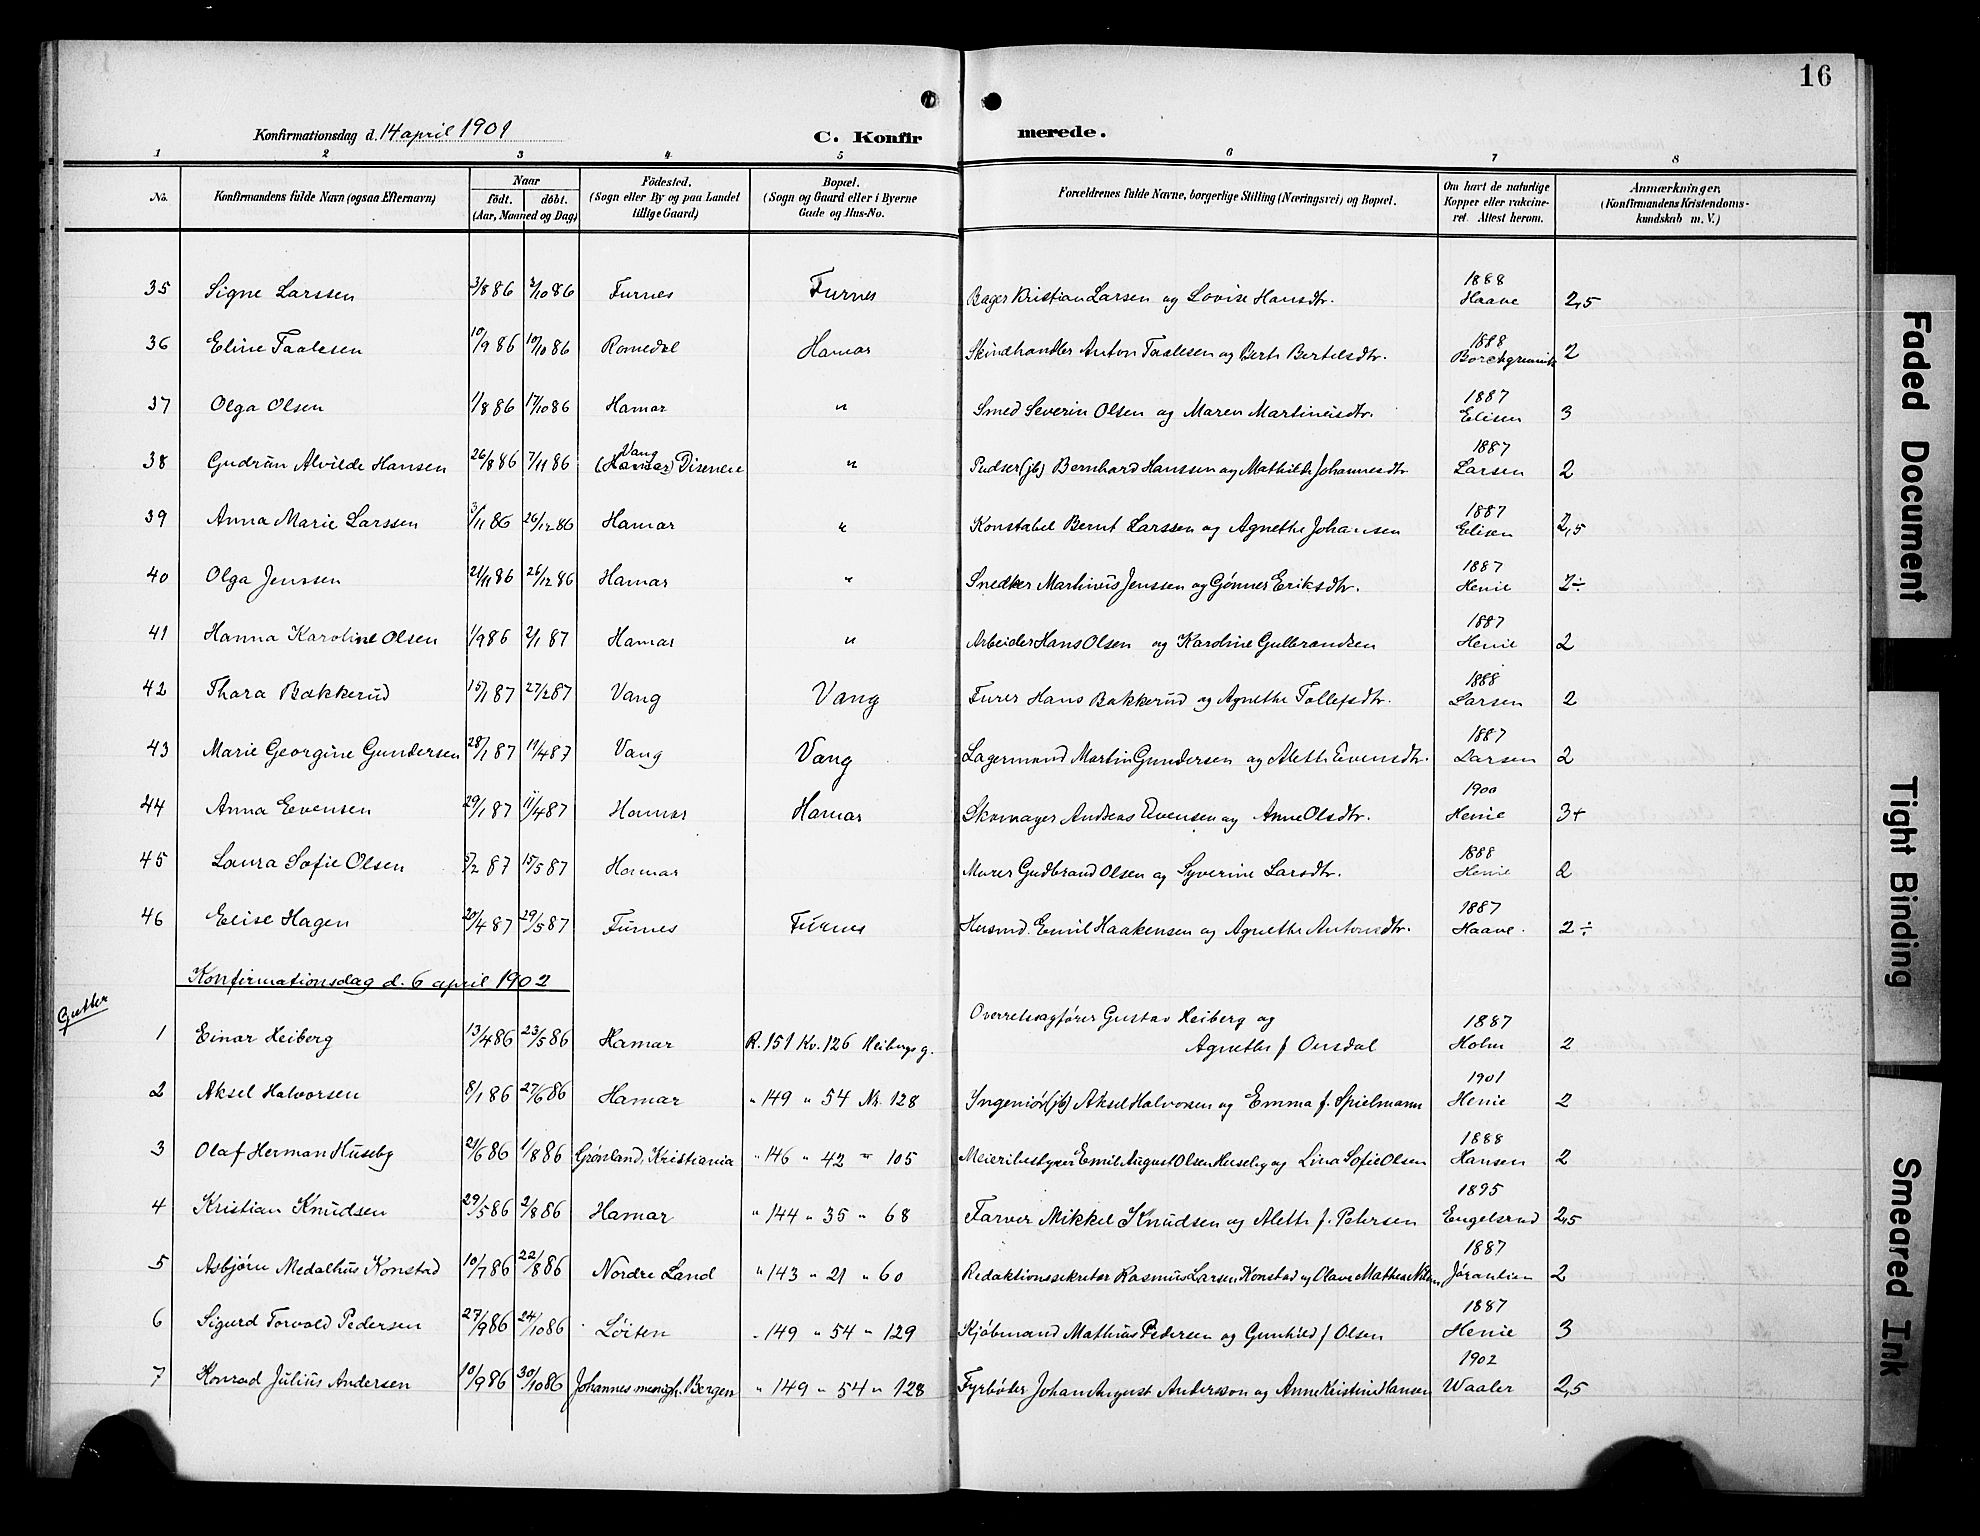 16
Konfirmationsdag d. 14 april 1901 C. Konfirmerede.
1 2 3 4 5 6 7 8
No. Konfirmandens fulde Navn (ogsaa Efternavn) Naar født. døbt. (Aar, Maaned og Dag) Fødested. (Sogn eller By og paa Landet tillige Gaard) Bopæl. (Sogn og Gaard eller i Byerne Gade og Hus-No. Forældrenes fulde Navne, borgerlige Stilling (Næringsvei) og Bopæl. Om havt de naturlige Kopper eller vakcineret. Attest herom. Anmærkninger. (Konfirmandens Kristendomskundskab m. V.)
35 Signe Larssen 3/8 86 3/10 86 Furnes Furnes Bager Kristian Larsen og Lovise Hansdtr. 1888 Haave 2,5
36 Eline Taalesen 10/9 86 10/10 86 Romedal Hamar Skindhandler Anton Taalesen og Berte Bertelsdtr. 1888 Borchgrevink 2
37 Olga Olsen 1/8 86 17/10 86 Hamar " Smed Severin Olsen og Maren Martineusdtr. 1887 Elisen 3
38 Gudrun Alvilde Hansen 26/8 86 7/11 86 Vang (Hamar) Disenene " Pudser (jb) Bernhard Hanssen og Mathilde Johannesdtr 1887 Larsen 2
39 Anna Marie Larssen 3/11 86 26/12 86 Hamar " Konstabel Bernt Larssen og Agnethe Johansen 1887 Elisen 2,5
40 Olga Jenssen 21/11 86 26/12 86 Hamar " Snedker Martinus Jenssen og Gønner Eriksdtr. 1887 Henie 2÷
41 Hanna Karoline Olsen 1/9 86 2/1 87 Hamar " Arbeider Hans Olsen og Karoline Gulbrandsen 1887 Henie 2
42 Thora Bakkerud 15/1 87 27/2 87 Vang Vang Furer Hans Bakkerud og Agnethe Tollefsdtr. 1888 Larsen 2
43 Marie Georgine Gundersen 28/1 87 11/4 87 Vang Vang Lagermand Martin Gundersen og Alethe Evensdtr. 1887 Larsen 2
44 Anna Evensen 29/1 87 11/4 87 Hamar Hamar Skomager Andreas Evensen og Anne Olsdtr. 1900 Henie 3+
45 Laura Sofie Olsen 5/2 87 15/5 87 Hamar Murer Gudbrand Olsen og Syverine Larsdtr. 1888 Henie 2
46 Elise Hagen 20/4 87 29/5 87 Furnes Furnes Husmd. Emil Haakensen og Agnethe Antonsdtr. 1887 Haave. 2÷
Konfirmationsdag d. 6 april 1902
Gutter
1 Einar Heiberg 13/4 86 23/5 86 Hamar R. 151 Kv. 126 Heibergs g. Overretssagfører Gustav Heiberg og Agnethe f Onsdal 1887 Holm 2
2 Aksel Halvorsen 8/1 86 27/6 86 Hamar " 149 " 54 Nr. 128 Ingeniør (jb) Aksel Halvorsen og Emma f. Spielmann 1901 Henie 2
3 Olaf Herman Huseby 21/6 86 1/8 86 Grønland, Kristiania " 146 " 42 " 105 Meieribestyrer Emil August Olsen Huseby og Lina Sofie Olsen 1888 Hansen 2
4 Kristian Knudsen 29/5 86 2/8 86 Hamar " 144 " 35 " 68 Farver Mikkel Knudsen og Alethe f. Petersen 1895 Engelsrud 2,5
5 Asbjørn Medalhus Konstad 10/7 86 22/8 86 Nordre Land " 143 " 21 " 60 Redaktionssekretær Rasmus Larsen Konstad og Olave Mathea 1887 2
6 Sigurd Torvald Pedersen 27/9 86 24/10 86 Løiten " 149 " 54 " 129 Kjøbmand Mathius Pedersen og Gunhild f Olsen 1887 Henie 3
7 Konrad Julius Andersen 10/9 86 30/10 86 Johannes menigh. Bergen " 149 " 54 " 128 Fyrbøder Johan August Andersson og Anne Kristine Hansen 1902 Waaler 2,5
Faded Document
Tight Binding
Smeared Ink